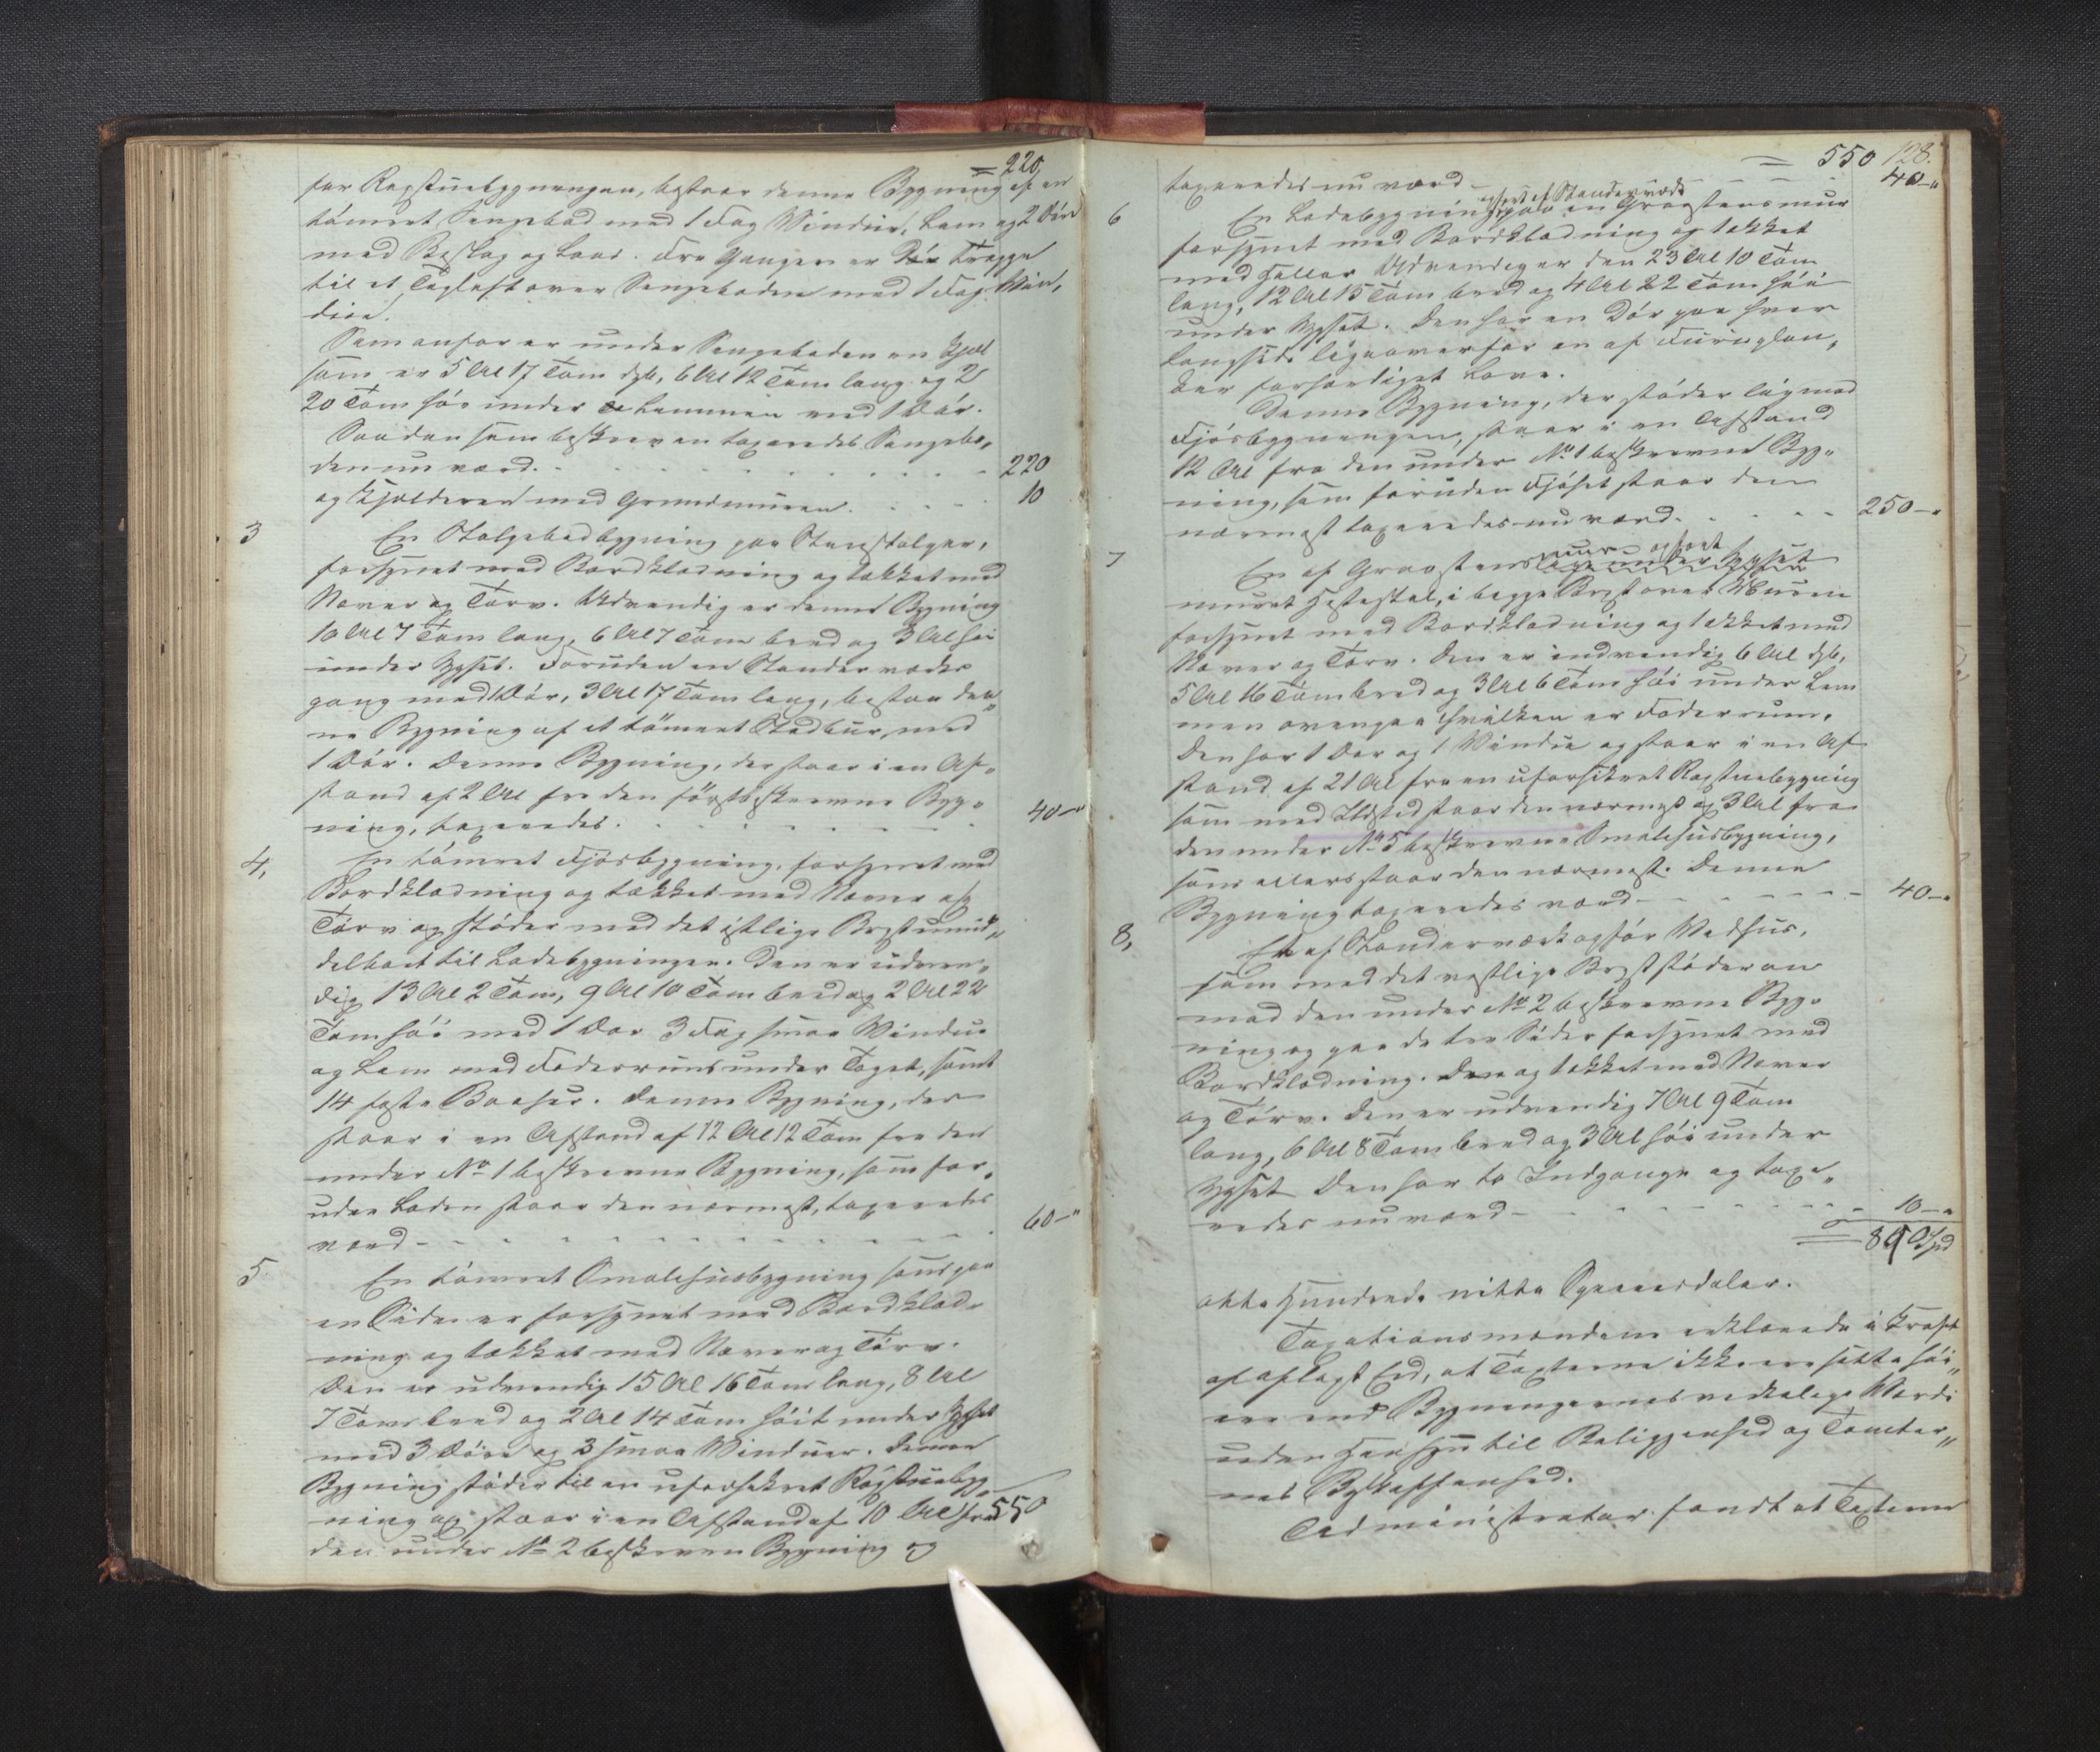 = 220
for Røgstuebygningen, bestaar denne Bygning af en
tømret Sengebod med 1 Fag Vinduer, Lem og 2 Døre
med Beslag og Laas. Fra Gangen er Trappe
til et Tagloft over Sengeboden med 1 Fag Vin¬
due.
Sem anfør er under Sengeboden en Kjæl
som er 5 Al 17 Tom dyb, 6 Al 12 Tom lang og 2
20 Tom høi under Lemmen med 1 Dør.
Saadan som beskreven taxeredes Sengebo¬
den nu værd - 220
og Kjælderen med Grundmuren - 10
3 En Stolpebodbygning paa Steenstolper,
forsynet med Bordklædning og tækket med
Næver og Tørv. Udvendig er denne Bygning
10 Al 7 Tom lang, 6 Al 7 Tom bred og 3 Al høi
under Gesims. Foruden en Standerværks
gang med 1 Dør, 3 Al 17 Tom lang, bestaar den¬
ne Bygning af et tømret Stabbur, med
1 Dør. Denne Bygning, der staar i en Af¬
stand af 2 Al fra den først beskrevne Byg¬
ning, taxeredes - 40 - "
4, En tømret Fjøsbygning, forsynet med
Bordklædning og tækket med Næver og
Tørv og støder med det østlige Bryst umid¬
delbart til Ladebygningen. Den er udven¬
dig 13 Al 2 Tom, 9 Al 10 Tom bred og 2 Al 22
Tom høi med 1 Dør 3 Fag smaa Vinduer
og Lem med Foderrum under Taget, samt
14 faste Baaser. Denne Bygning, der
staar i en Afstand af 12 Al 12 Tom fra den
under No 1 beskrevne Bygning, som for¬
uden Laden staar den nærmest, taxeredes
værd - 60 - "
5 En tømret Smalehusbygning som paa
en Side er forsynet med Bordklæd¬
ning og tækket med Næver og Tørv.
Den er udvendig 15 Al 16 Tom lang, 8 Al
7 Tom bred og 2 Al 14 Tom høit under
med 3 Døre og 3 smaa Vinduer. Denne
Bygning støder til en uforsikret Røgstuebyg¬
ning og staar i en Afstand af 10 Al fra 550
den under No 2 beskreven Bygning og
= 550 128.
taxeredes nu værd - 40 - "
opført af Standerværk
6 En Ladebygning paa en Graasteensmur
forsynet med Bordklædning og tækket
med Heller Udvendig er den 23 Al 10 Tom
lang, 12 Al 15 Tom bred og 4 Al 22 Tom høi
under . Den har en Dør paa hver
Langside ligeoverfor en af Furuplan¬
ker forfærdiget Laave.
Denne Bygning, der støder lig med
Fjøsbygningen, staar i en Afstand
12 Al fra den under No 1 beskrevne Byg¬
ning, som foruden Fjøset staar den
nærmest taxeredes nu værd - 250 - "
mur opført
7 En af Graasteens
muret Hestestal, i begge Bryst over Muren
forsynet med Bordklædning og tækket med
Næver og Tørv. Den er indvendig 6 Al dyb,
5 Al 16 Tom bred og 3 Al 6 Tom høi under Lem
men ovenpaa hvilken er Foderrum.
Den har 1 Dør og 1 Vindue og staar i en Af
stand af 21 Al fra en uforsikret Røgstuebygning
som med Ildsted staar den nærmest og 3 Al fra
den under No 5 beskrevne Smalehusbygning,
som ellers staar den nærmest. Denne
Bygning taxeredes værd - 40 - "
8, Et af Standerværk opført Vedhus,
som med det vestlige Bryst støder an
mod den under No 2 beskrevne Byg¬
ning og paa de tre Sider forsynet med
Bordklædning og tækket med Næver
og Tørv. Den er udvendig 7 Al 9 Tom
lang, 6 Al 8 Tom bred og 3 Al høi under
Den har to Indgange og taxe¬
redes nu værd - 10 - "
= 890 Spd
otte Hundrede nitti Speciedaler.
Taxationsmændene erklærede i Kraft
af aflagt Ed, at Taxterne ikke ere satte høi¬
ere end Bygningernes virkelige Værdi
uden Hensyn til Beliggenhed og Tomter¬
nes Beskaffenhed.
Administrator fandt at Taxterne